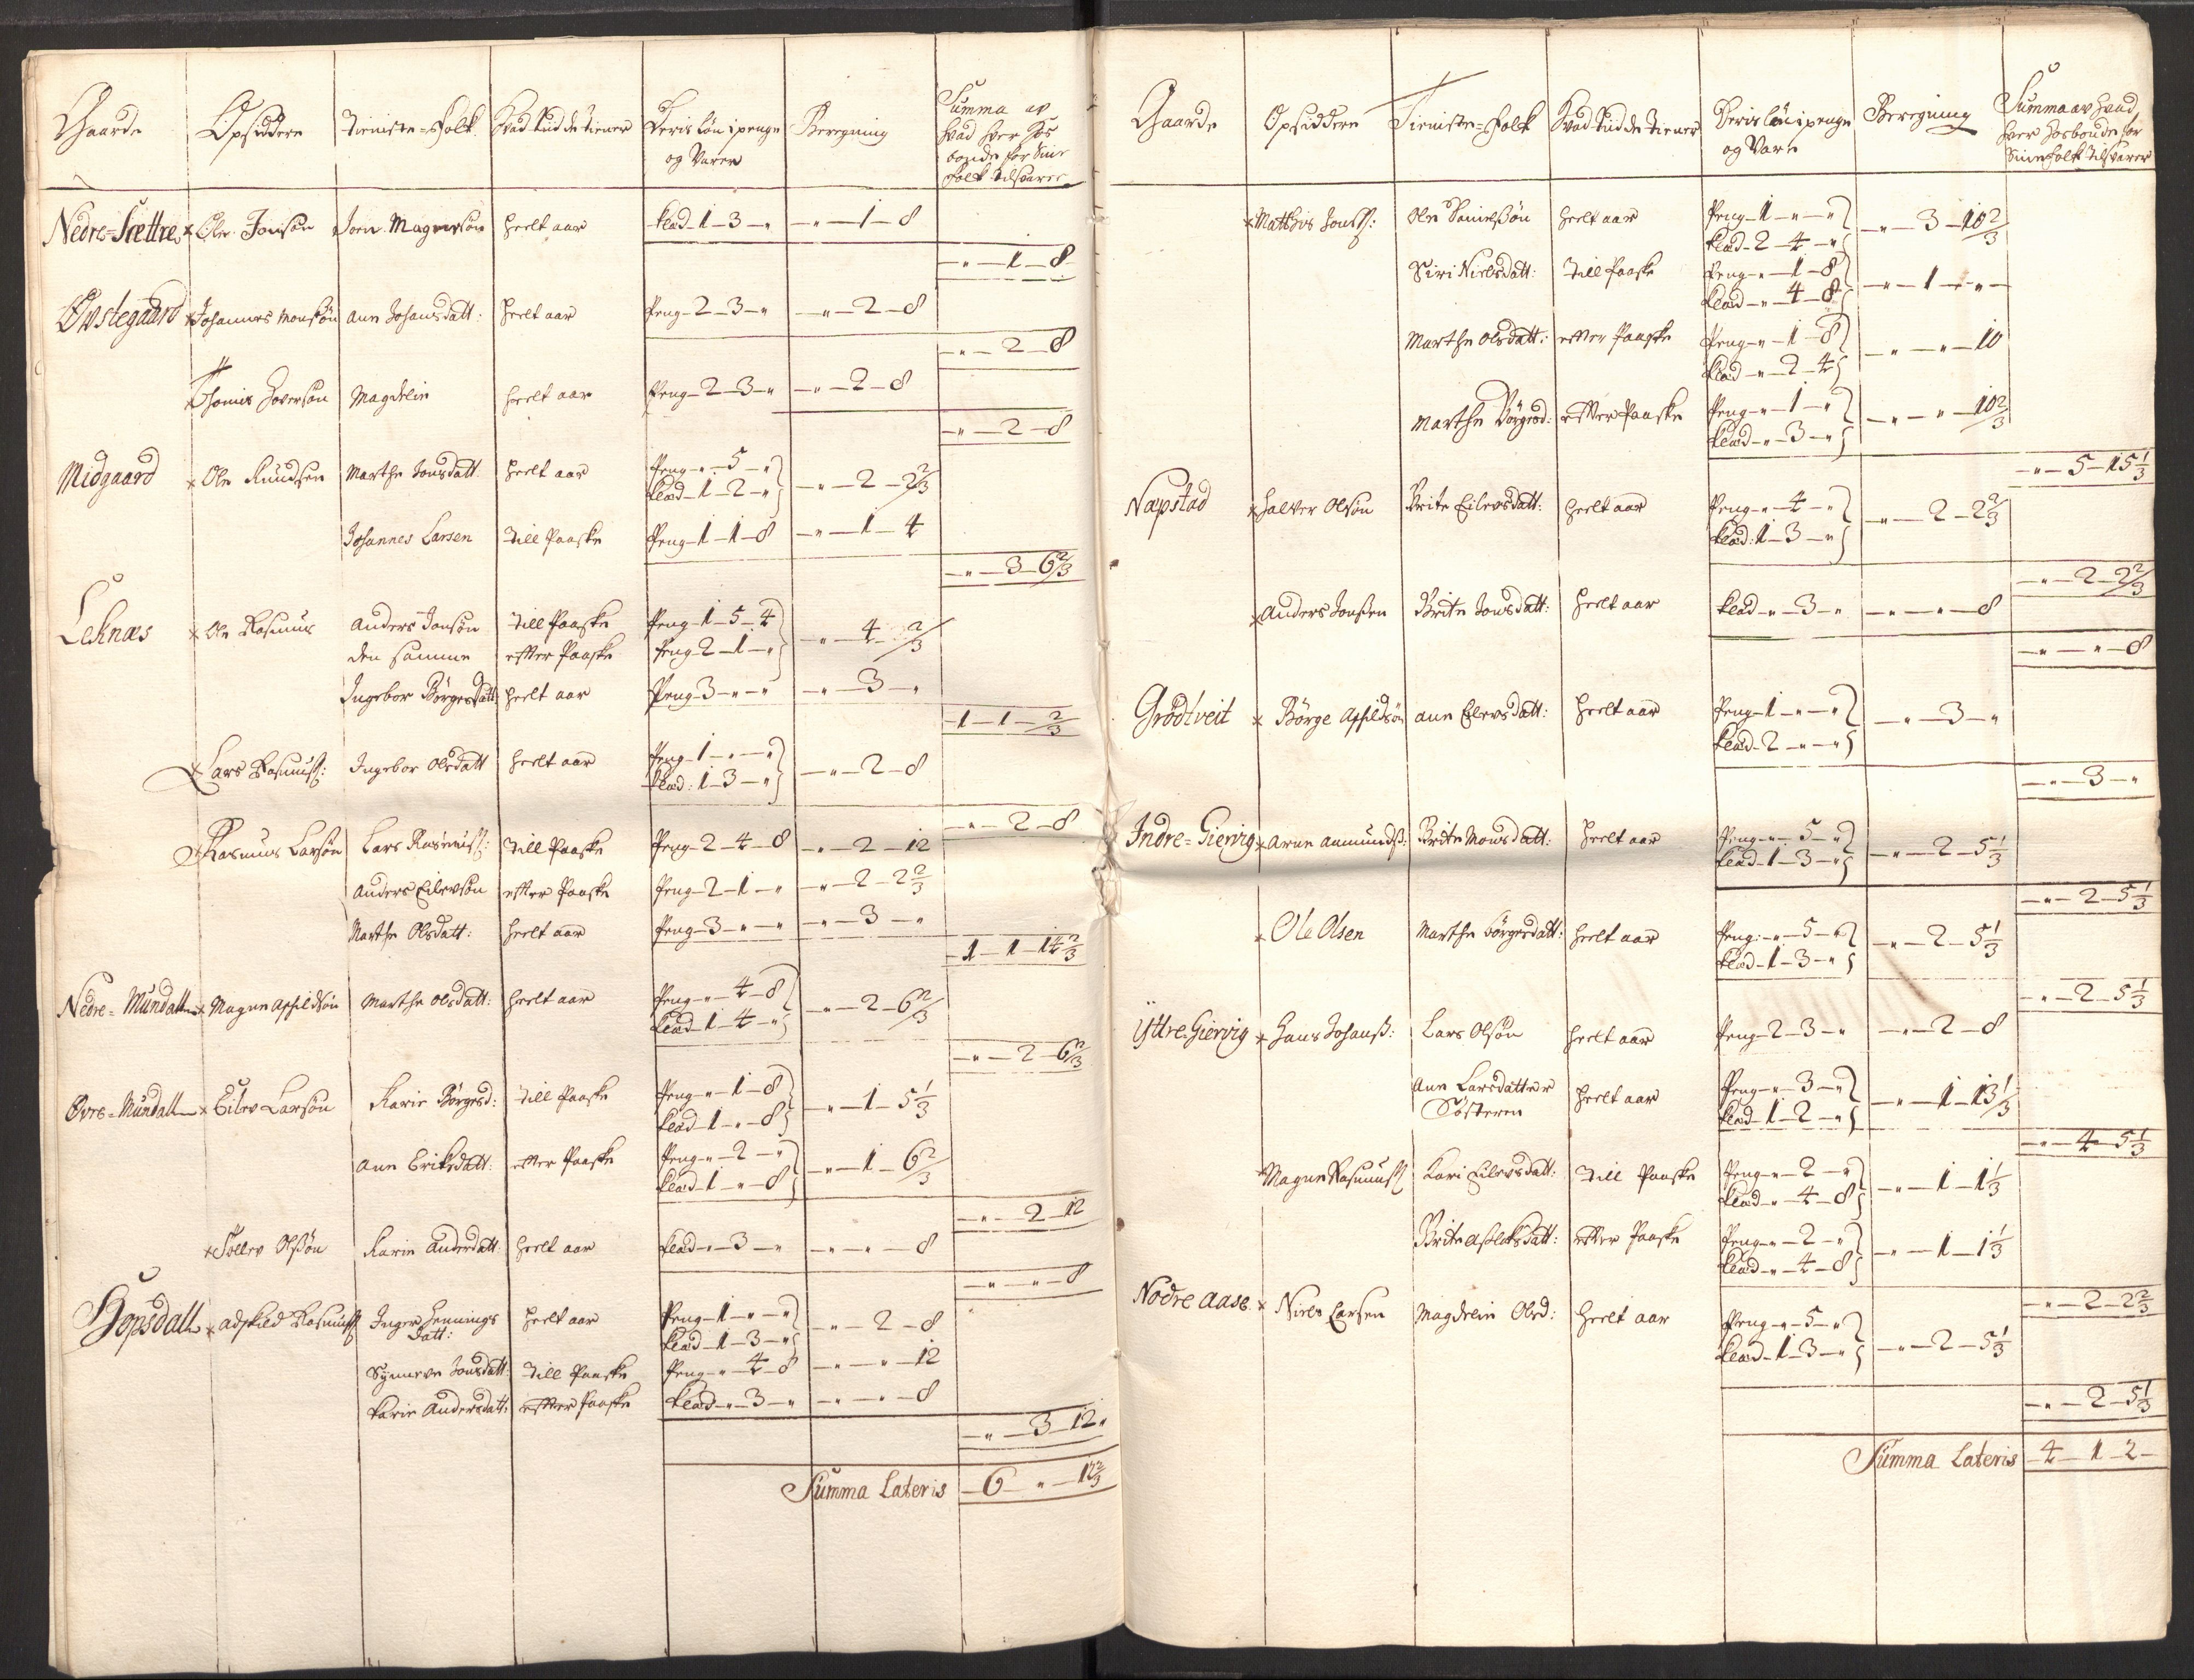 Gaarde Opsiddere Tieniste-Folk Hvad tiid de tiener Deris Løn i penge og Varer Beregning Summa av hvad hver Hosbonde for Sine folk tilsvarer
Nedre-Frettre × Ole Jonsøn Joen Magnesøn heelt aar klæd 1-3-" "-1-8
"-1-8
Øvstegaard × Johannes Monsøn Ann Johansdatt: heelt aar Peng-2-3-" "-2-8
"-2-8
× Thomis Joversøn Magdelin heelt aar Peng-2-3-" "-2-8
"-2-8
Midgaard × Ole Knudsen Marthe Jonsdatt. heelt aar Peng-"-5-"
klæd-1-2-" "-2-2 2/3
Johannes Larsen till Paaske Peng-1-1-8 "-1-4
"-3-6 2/3
Leknæs × Ole Rasmus Anders Jonsøn till Paaske Peng-1-5-4
den samme efter Paaske Peng-2-1-" "-4-2/3
Ingebor Børgesdatt: heelt aar Peng-3-"-" "-3-"
1-1-2/3
× Lars Rasmuss: Ingebor Olsdatt heelt aar Peng-1-"-"
klæd:1-3-" "-2-8
"-2-8
× Rasmus Larsøn Lars Rasmuss: till Paaske Peng-2-4-8 "-2-12
Anders Eilevsøn efter Paaske Peng-2-1-" "-2-2 2/3
Marthe Olsdatt: heelt aar Peng-3-"-" "-3-"
1-1-14 2/3
Nedre-Mundall × Magne Aschildsøn Marthe Olsdatt: heelt aar Peng-"-4-8
klæd-1-4-" "-2-6 2/3
"-2-6 2/3
Øvre-Mundall × Eilev Larsøn Karie Børgesd: till Paaske Peng-"-1-8
klæd-1-"-8 "-1-5 1/3
Ann Eriksdatt: efter Paaske Peng-"-2-"
klæd-1-"-8 "-1-6 2/3
"-2-12
× Tollev Olssøn Karie Andersdatt: heelt aar klæd-"-3-" "-"-8
"-"-8
Hopsdall × Adskild Rasmuss Inger Hennings
datt: heelt aar Peng-1-"-"
klæd-1-3-" "-2-8
Synneve Jonsdatt: till Paaske Peng-"-4-8 "-"-12
Karie Andersdatt: efter Paaske klæd-"-3-" "-"-8
"-3-12
Summa Lateris 6-"-12 2/3
Gaarde Opsiddere Tieniste-Folk Hvad tiid de tiener Deris Løn i penge og Vare Beregning Summa av hvad hver Hosbonde for Sine folk tilsvarer
× Matthis Jonss: Ole Danielssøn heelt aar Peng-1-"-"
klæd-2-4-" "-3-10 2/3
Siri Nielsdatt: till Paaske Peng-"-1-8
klæd-"-4-8 "-1-"
Marthe Olsdatt: efter Paaske Peng-"-1-8
klæd-"-2-4 "-"-10
Marthe Børgesd: efter Paaske Peng-"-1-"
klæd-"-3-" "-"-10 2/3
"-5-15 1/3
Næpstad × Halver Olsøn Brite Eilevsdatt: heelt aar Peng-"-4-"
klæd:1-3-" "-2-2 2/3
"-2-2 2/3
× Anders Jonssen Brite Jonsdatt: heelt aar klæd-"-3-" "-"-8
"-"-8
Grødtveit × Børge Aschildsøn Ann Elevsdatt: heelt aar Peng-1-"-"
klæd-2-"-" "-3-"
"-3-"
Indre-Giervig × Arne Aamundss: Brite Monsdatt: heelt aar Peng-"-5-"
klæd-1-3-" "-2-5 1/3
"-2-5 1/3
× Ole Olsen Marthe Børgesdatt: heelt aar Peng:-"-5-"
klæd-1-3-" "-2-5 1/3
"-2-5 1/3
Yttre-Giervig × Hans Johanss: Lars Olsøn heelt aar Peng-2-3-" "-2-8
Ann Larsdatter
Søsteren heelt aar Peng-"-3-"
klæd-1-2-" "-1-13 1/3
"-4-5 1/3
× Magne Rasmuss Kari Eilevsdatt: till Paaske Peng-"-2-"
klæd-"-4-8 "-1-1 1/3
Brite Aslaksdatt: efter Paaske Peng-"-2-"
klæd-"-4-8 "-1-1 1/3
"-2-2 2/3
Nodre Aase × Niels Larsen Magdelin Olsd: heelt aar Peng-"-5-"
klæd-1-3-" "-2-5 1/3
"-2-5 1/3
Summa Lateris 4-1-2-